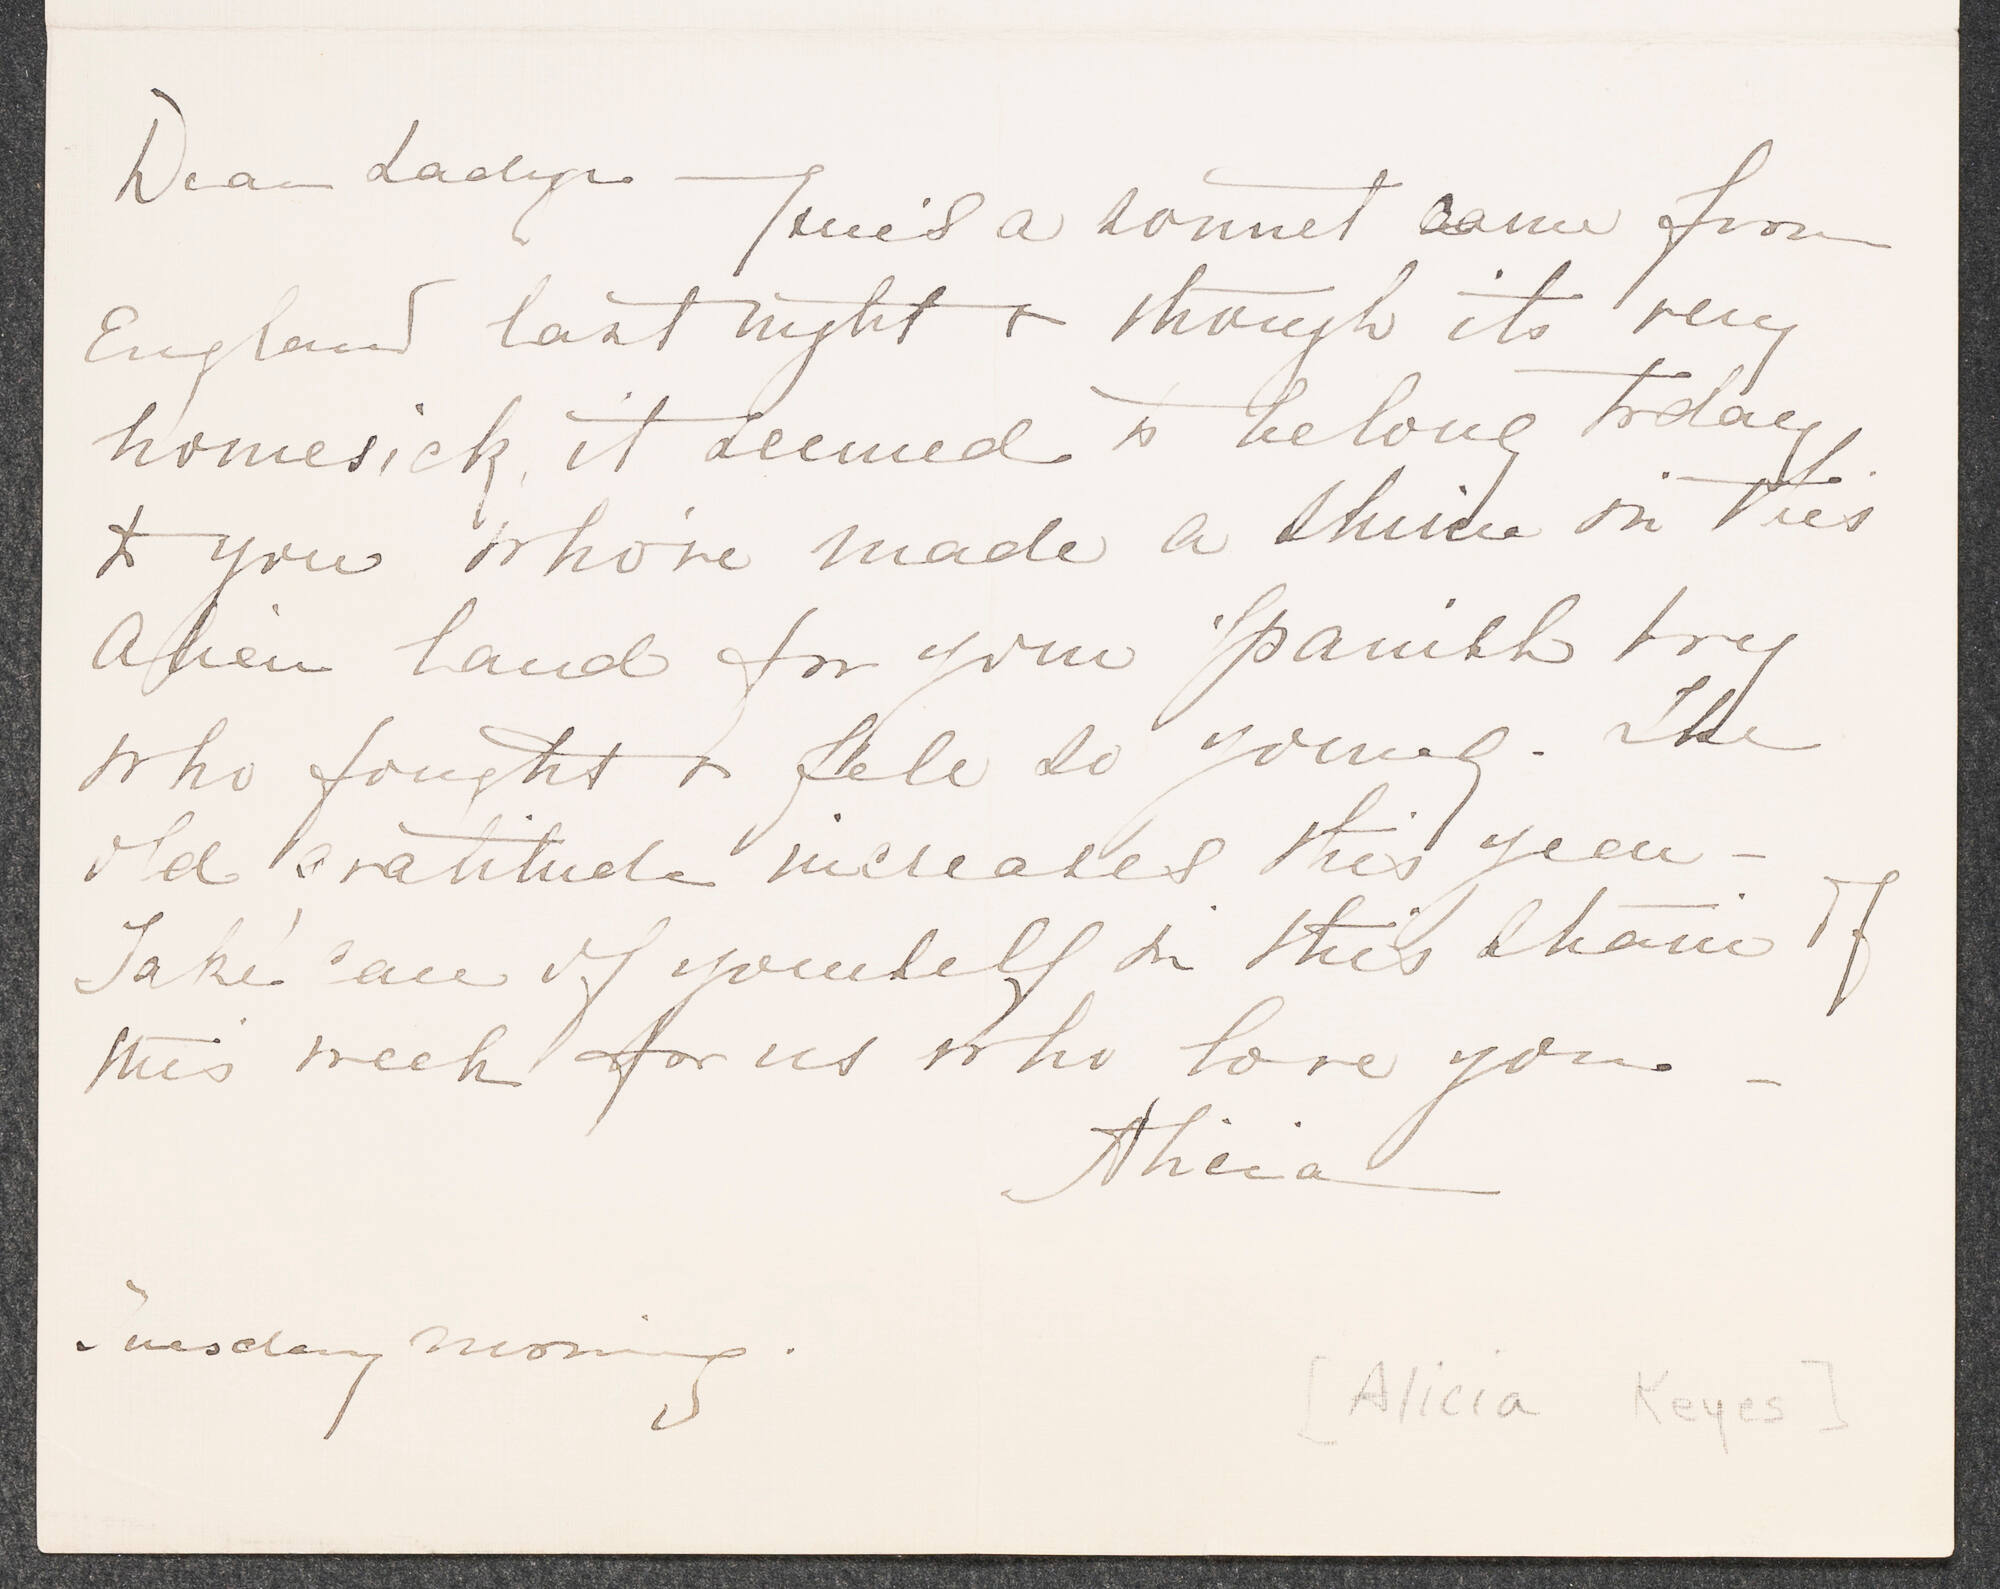 Dear Ladye — a sonnet came from
England last night & though its very
homesick, it seemed to belong today,
to you who've made a shrine in this
Alien land for your Spanish boy
who fought & fell so young. The
old gratitude increases this year –
Take care of yourself in this strain of
this week for us who love you –
Alicia
Tuesday morning.
[Alicia Keyes]